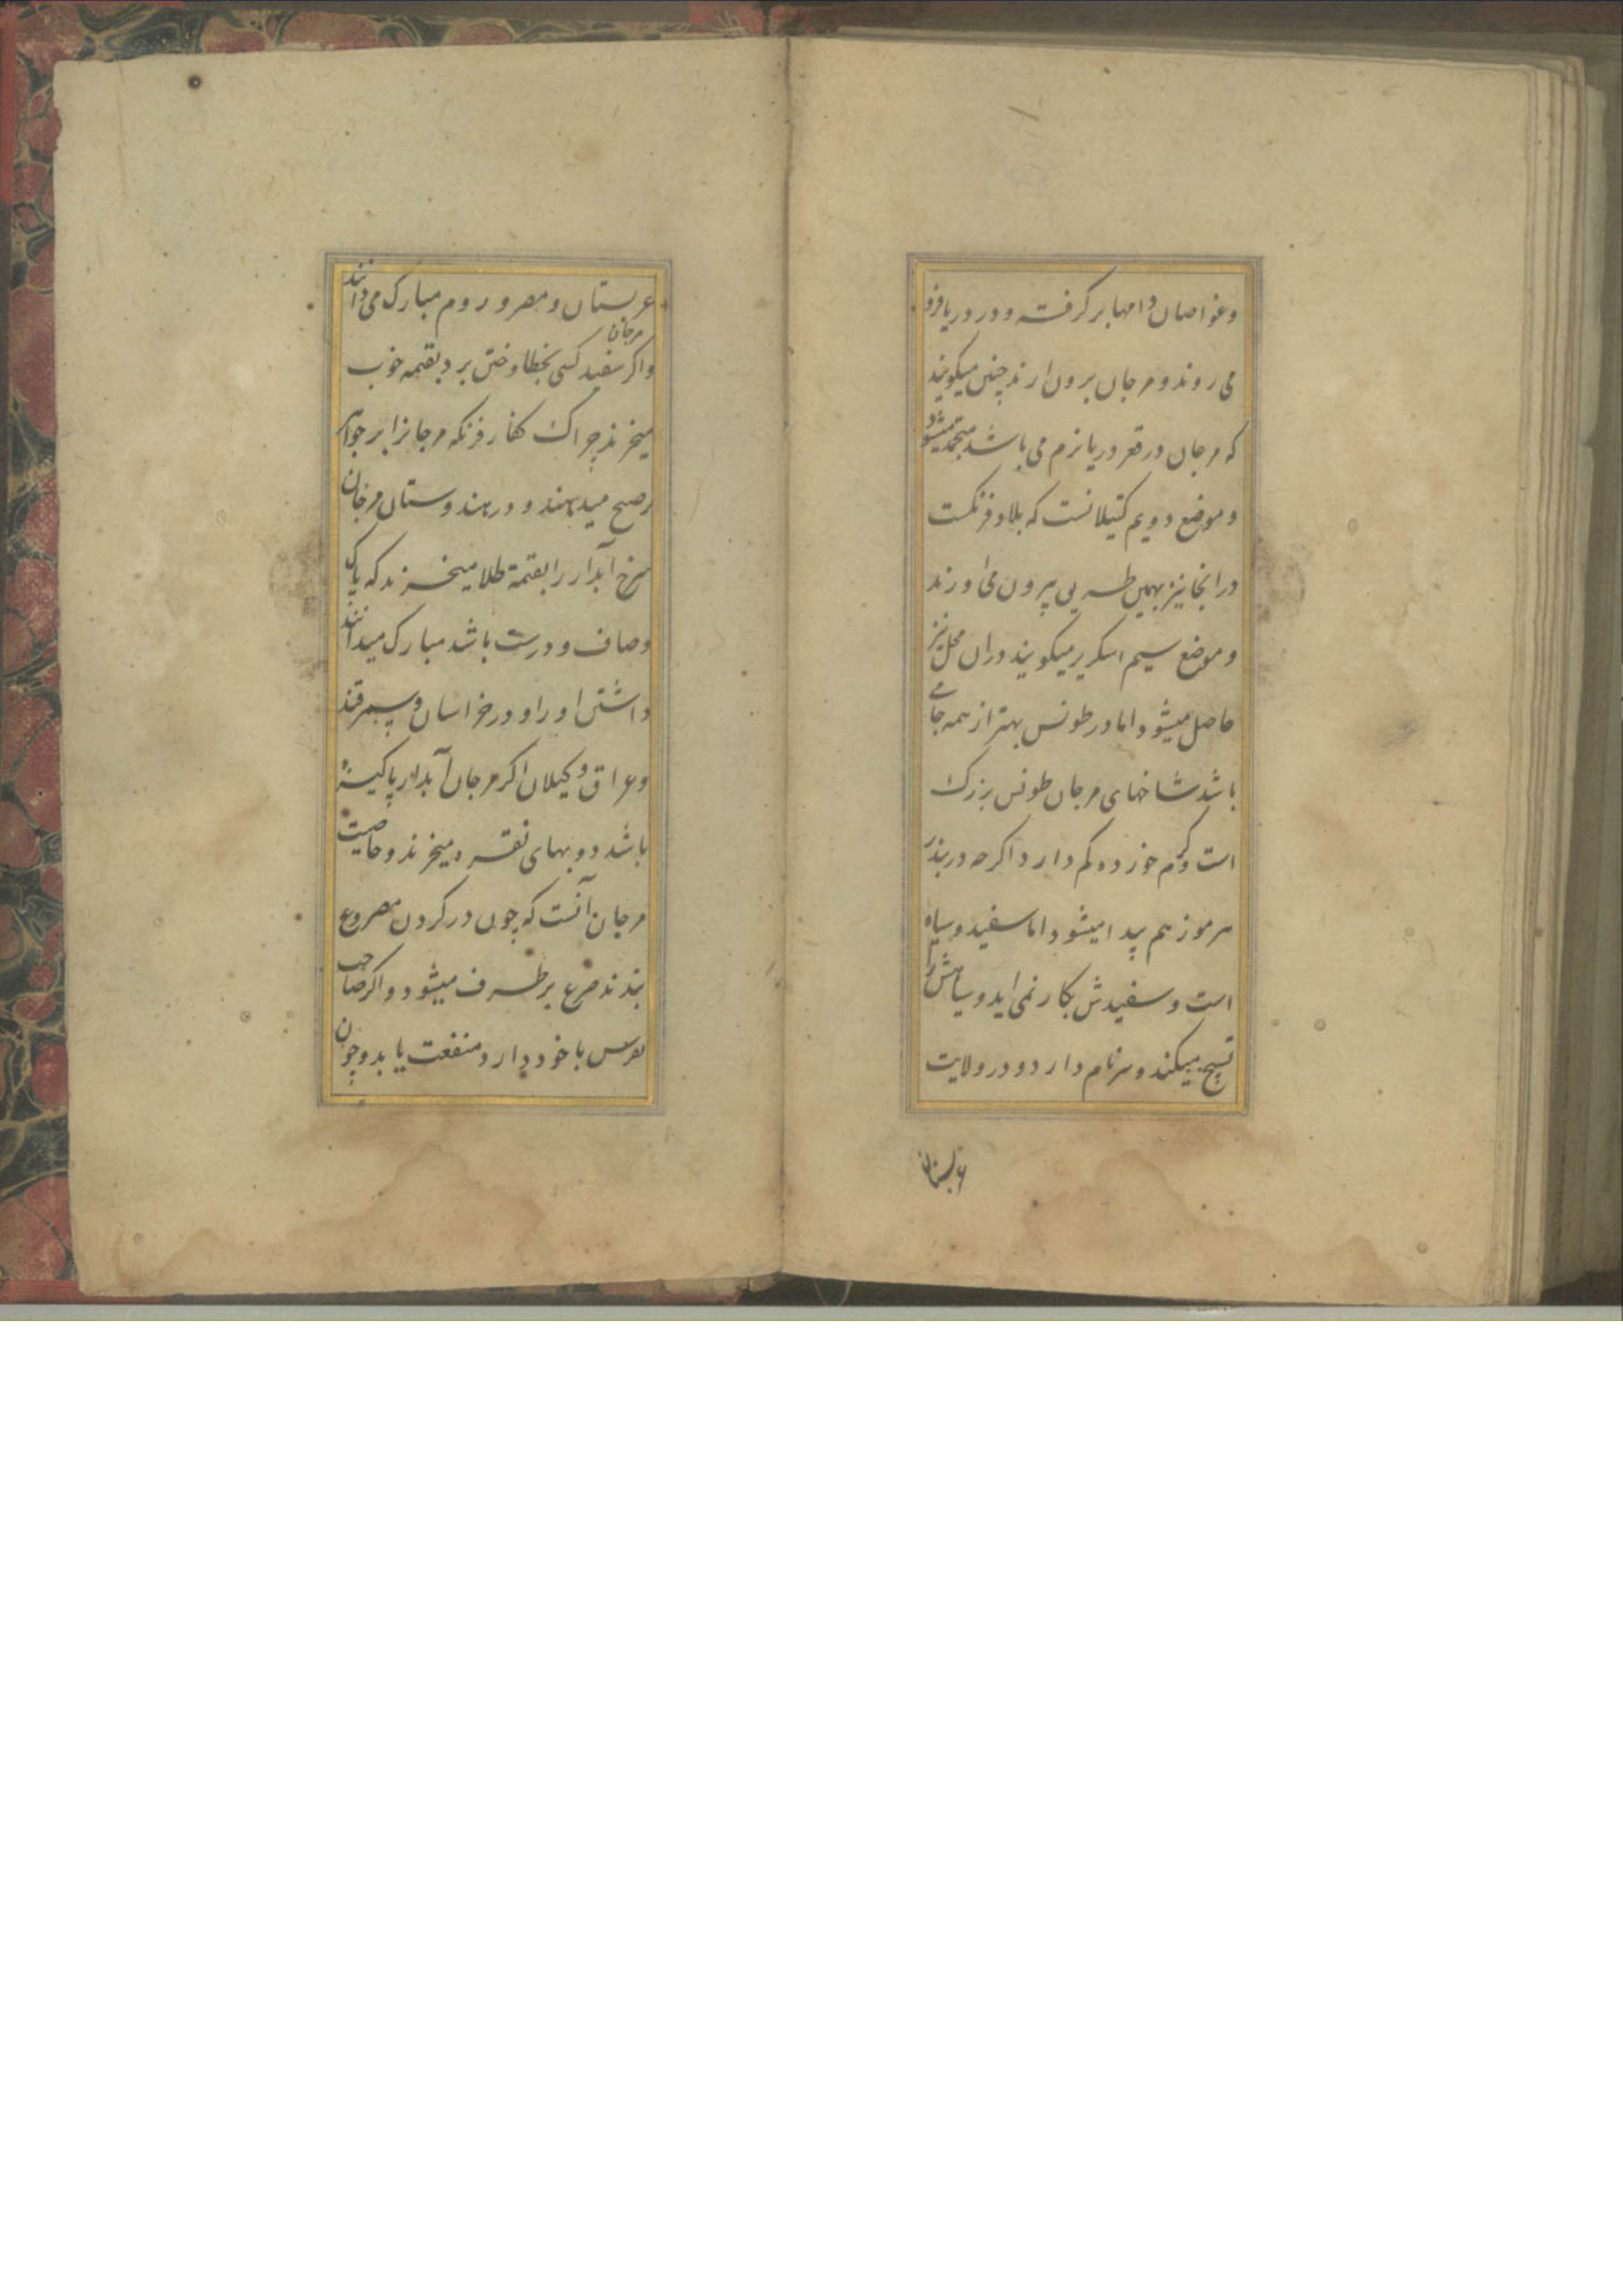 وغواصان دامها بر گرفته و در دریا فرو
می روند و مرجان برون ارند چنین میکویند
که مرجان در قعر دریا نرم می باشد منجمد میشود
و موضع دویم کتیلانست که بلاد فرنکست
در انجا نیز بهمین طریق بیرون می اورند
و موضع سیم میکویند دران محل نیز
حاصل میشود اما در طونس بهتر از همه جای
باشد شاخهای مرجان طونس بزرک
است و کرم خورده کم دارد اکرچه در بندر
هرموز هم پیدا میشود اما سفید و سیاه
است و سفیدش بکار نمی اید و سیاهش را
تسبیح میکنند و سر نام دارد و در ولایت
عربستان
عربستان و مصر و روم مبارک می دانند
واکر مرجان سفید کسی بخطا و ختن برد بقیمه خوب
میخرند چراک کفار فرنکه مرجانرا بر جواهر
رجیح میدهند و در هندوستان مرجان
سرخ آبدار را بقیمة طلا میخرند که پاک
وصاف و درست باشد مبارک میدانند
داشتن او را و در خراسان و سمرقند
و عراق و کیلان اکر مرجان آبدار پاکیزه
باشد دو بهای نقره میخرند و خاصیت
مرجان آنست که چون در کردن مصروع
بندند صرع بر طرف میشود و اکر صاحب
نقرس با خود دارد منفعت یابد و چون